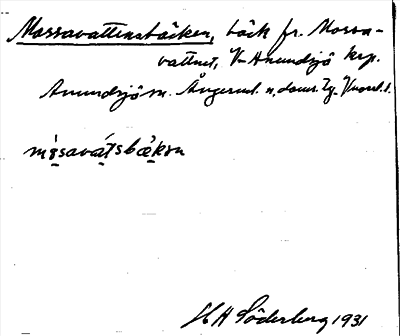 Mossavattensbäcken, bäck fr. Mossa-
vattnet, V. Anundsjö krp.
Anundsjö sn. Ångerml. n. doms. Tg.
mòsavátsbä̀kɘn
H H Söderberg 1931